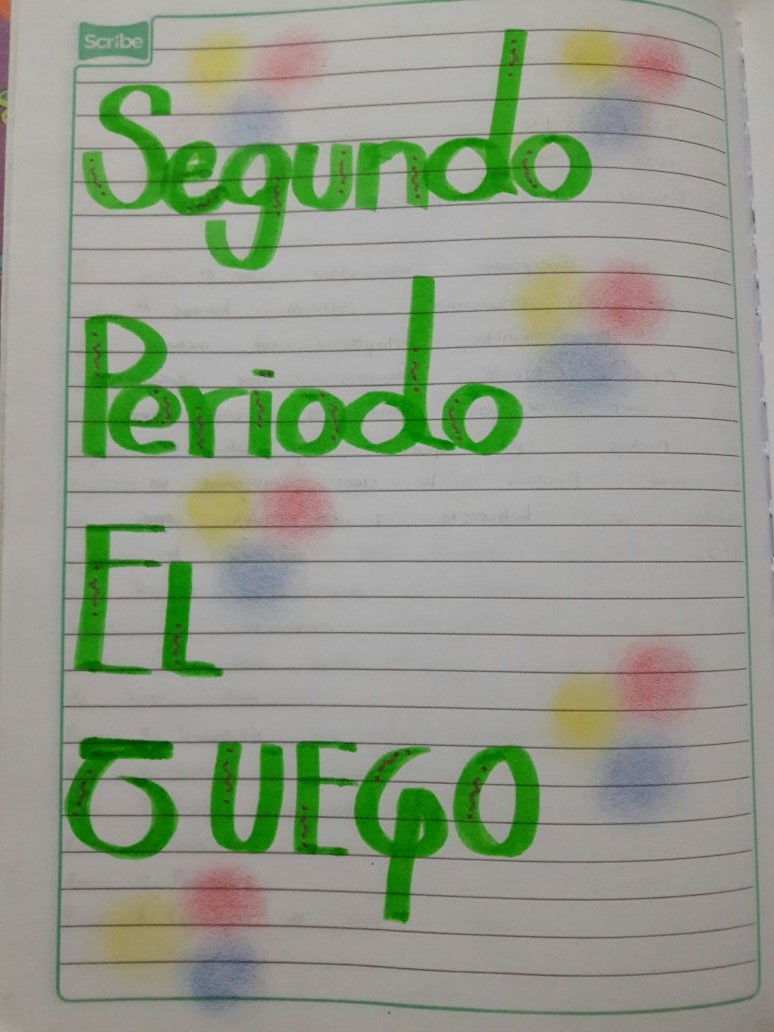 Scribe
Segundo
Periodo
EL
JUEGO